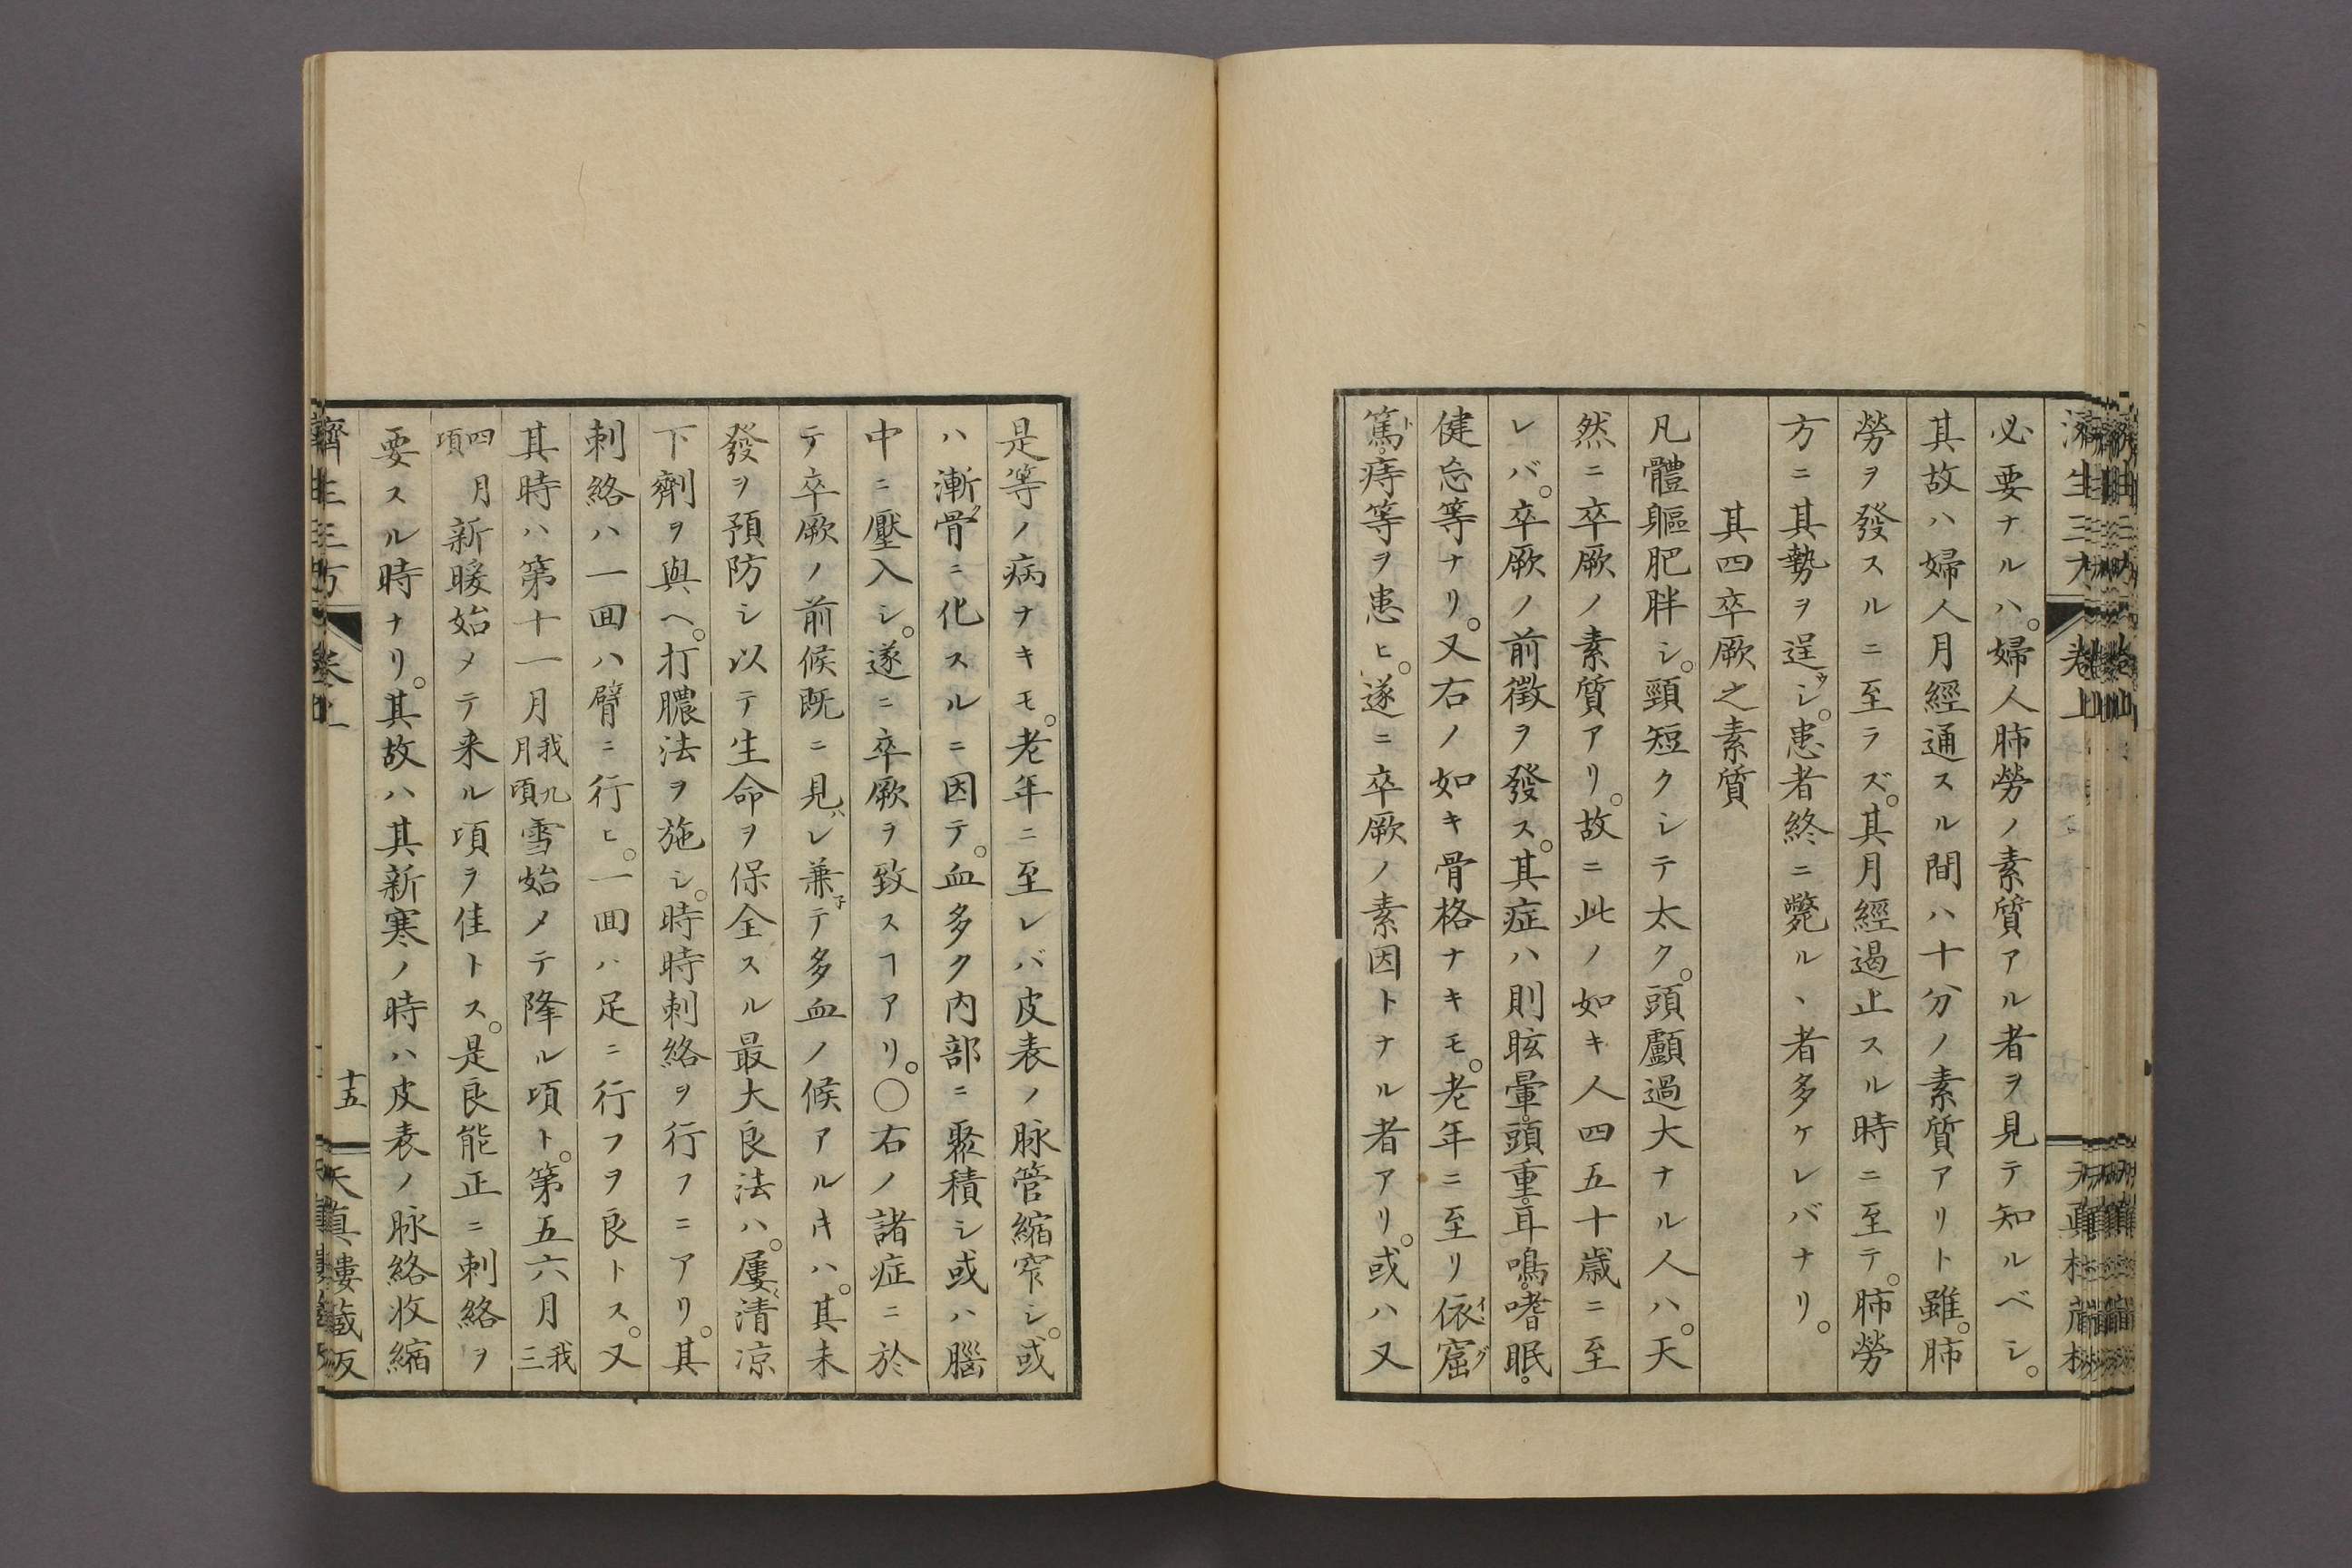 必要ナルハ。婦人肺勞ノ素質アル者ヲ見テ知ルベシ。
其故ハ婦人月經通スル間ハ十分ノ素質アリト雖。肺
勞ヲ發スルニ至ラズ。其月經遏止スル時ニ至テ。肺勞
方ニ其勢ヲ逞ウシ。患者終ニ斃ル、者多ケレバナリ。
其四卒厥之素質
凡體軀肥胖シ。頸短クシテ太ク。頭顱過大ナル人ハ。天
然ニ卒厥ノ素質アリ。故ニ此ノ如キ人四五十歳ニ至
レバ。卒厥ノ前徴ヲ發ス。其症ハ則眩暈。頭重。耳鳴。嗜眠。
健忘等ナリ。又右ノ如キ骨格ナキモ。老年ニ至リ依イ窟グ
篤ト。痔等ヲ患ヒ。遂ニ卒厥ノ素因トナル者アリ。或ハ又
是等ノ病ナキモ。老年ニ至レバ皮表ノ脉管縮窄シ。或
ハ漸骨ニ化スルニ因テ。血多ク内部ニ聚積シ或ハ腦
中ニ壓入シ。遂ニ卒厥ヲ致スヿアリ。○右ノ諸症ニ於
テ卒厥ノ前候既ニ見ハレ兼子テ多血ノ候アルキハ。其未
發ヲ預防シ以テ生命ヲ保全スル最大良法ハ。屢清凉
下劑ヲ與ヘ。打膿法ヲ施シ。時時刺絡ヲ行フニアリ。其
刺絡ハ一囬ハ臂ニ行ヒ。一囬ハ足ニ行フヲ良トス。又
其時ハ第十一月我九月頃雪始メテ降ル頃ト。第五六月我三
四月頃新暖始メテ来ル頃ヲ佳トス。是良能正ニ刺絡ヲ
要スル時ナリ。其故ハ其新寒ノ時ハ皮表ノ脉絡收縮
濟生三方 卷上 十五 天真樓藏版